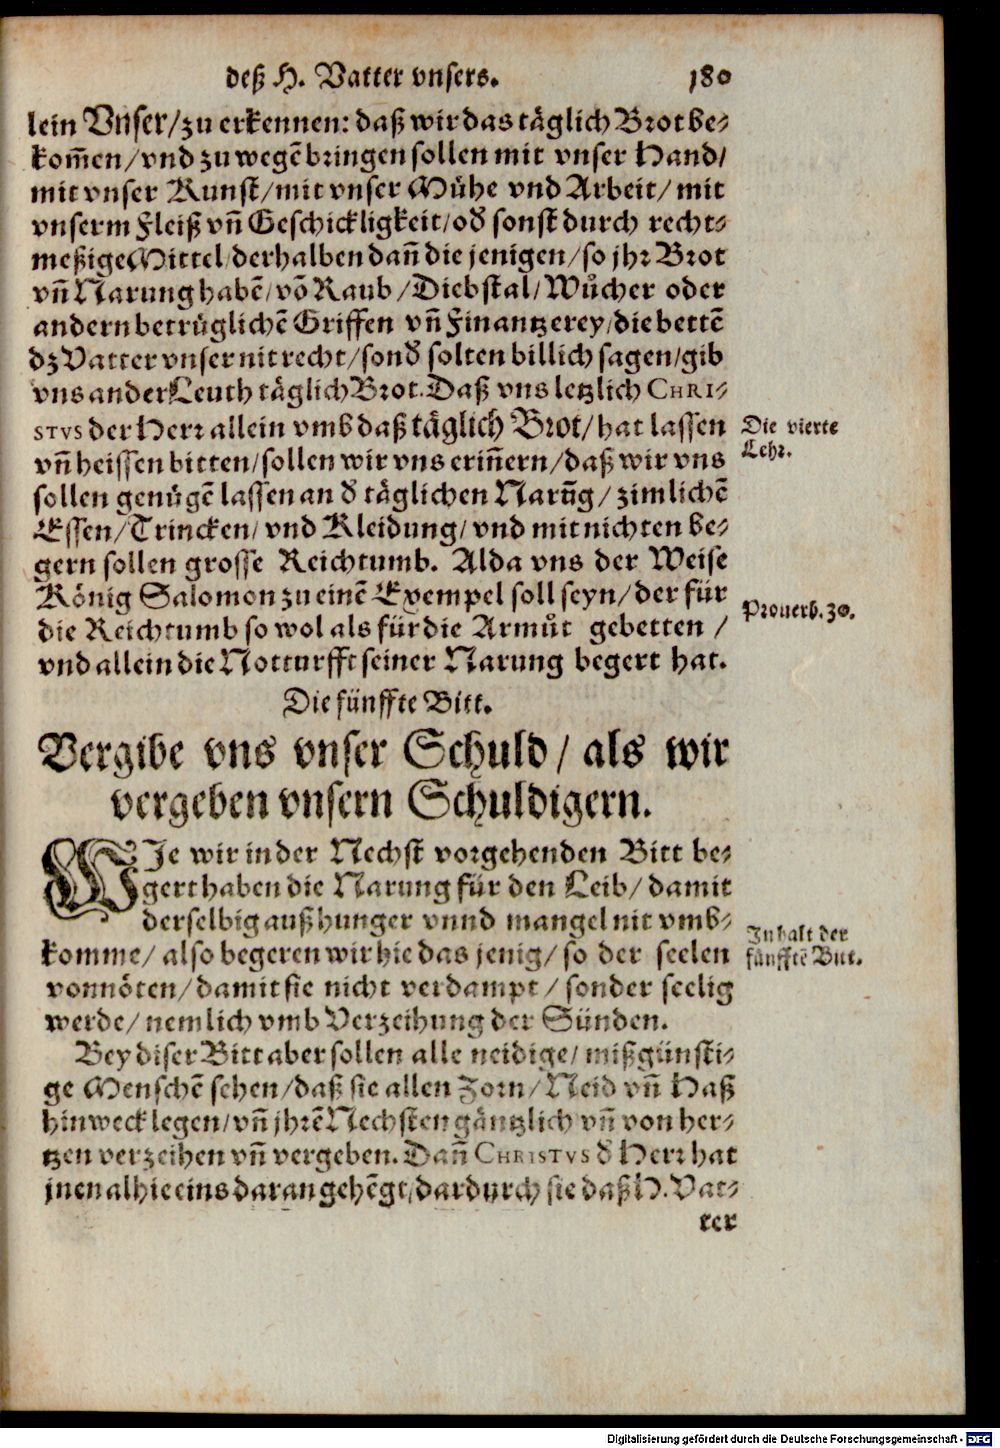 deß H. Vatter vnsers. 180
lein Vnser/zu erkennen: daß wir das täglich Brot be-
kom̃en/vnd zu wegẽ bringen sollen mit vnser Hand/
mit vnser Kunst/mit vnser Mühe vnd Arbeit/ mit
vnserm Fleiß vñ Geschickligkeit/od̃ sonst durch recht-
meßige Mittel/derhalben dañ die jenigen/so jhr Brot
vñ Narung habẽ/võ Raub/Diebstal/Wůcher oder
andern betrüglichẽ Griffen vñ Finantzerey/die bettẽ
dz Vatter vnser nit recht/sond̃ solten billich sagen/gib
vns ander Leuth täglich Brot. Daß vns letzlich CHRI-
STVS der Herr allein vmb daß täglich Brot/hat lassen
vñ heissen bitten/sollen wir vns eriñern/daß wir vns
sollen genügẽ lassen an d̃ täglichen Narũg/ zimlichẽ
Essen/Trincken/vnd Kleidung/vnd mit nichten be-
gern sollen grosse Reichtumb. Alda vns der Weise
König Salomon zu einẽ Exempel soll seyn/der für
die Reichtumb so wol als für die Armůt gebetten /
vnd allein die Notturfft seiner Narung begert hat.
Die vierte
Lehr.
Prouerb. 30.
Die fünffte Bitt.
Vergibe vns vnser Schuld/ als wir
vergeben vnsern Schuldigern.
WJe wir in der Nechst vorgehenden Bitt be-
gert haben die Narung für den Leib/ damit
derselbig auß hunger vnnd mangel nit vmb-
komme/ also begeren wir hie das jenig/ so der seelen
vonnöten/damit sie nicht verdampt/ sonder seelig
werde/ nemlich vmb Verzeihung der Sünden.
Inhalt der
fünfftẽ Bitt.
Bey diser Bitt aber sollen alle neidige/ mißgünsti-
ge Menschẽ sehen/daß sie allen Zorn/ Neid vñ Haß
hinweck legen/vñ jhrẽ Nechsten gäntzlich vñ von her-
tzen verzeihen vñ vergeben. Dañ CHRISTVS d̃ Herr hat
jnen alhie eins daran gehẽgt/dardurch sie daß H. Vat-
ter
Digitalisierung gefördert durch die Deutsche Forschungsgemeinschaft - DFG